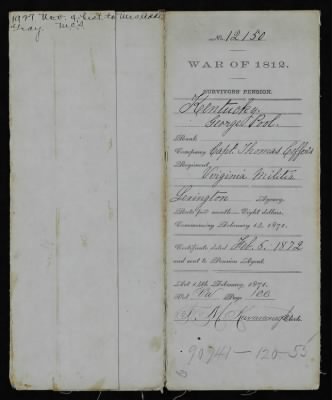 1927 Nov. 9 hist to Mrs
Gray. McS
No. 12150
WAR OF 1812.
SURVIVORS PENSION.
Kentucky.
George Pool.
Rank
Company Capt. Thomas
Regiment
Virginia Militia
Lexington Agency.
Rate per month—Eight dollars.
Commencing February 14, 1871.
Certificate dated Feb. 5. 1872
and sent to Pension Agent.
Act 14th February, 1871.
Vol. Page 100
Clerk.
90941-120-55